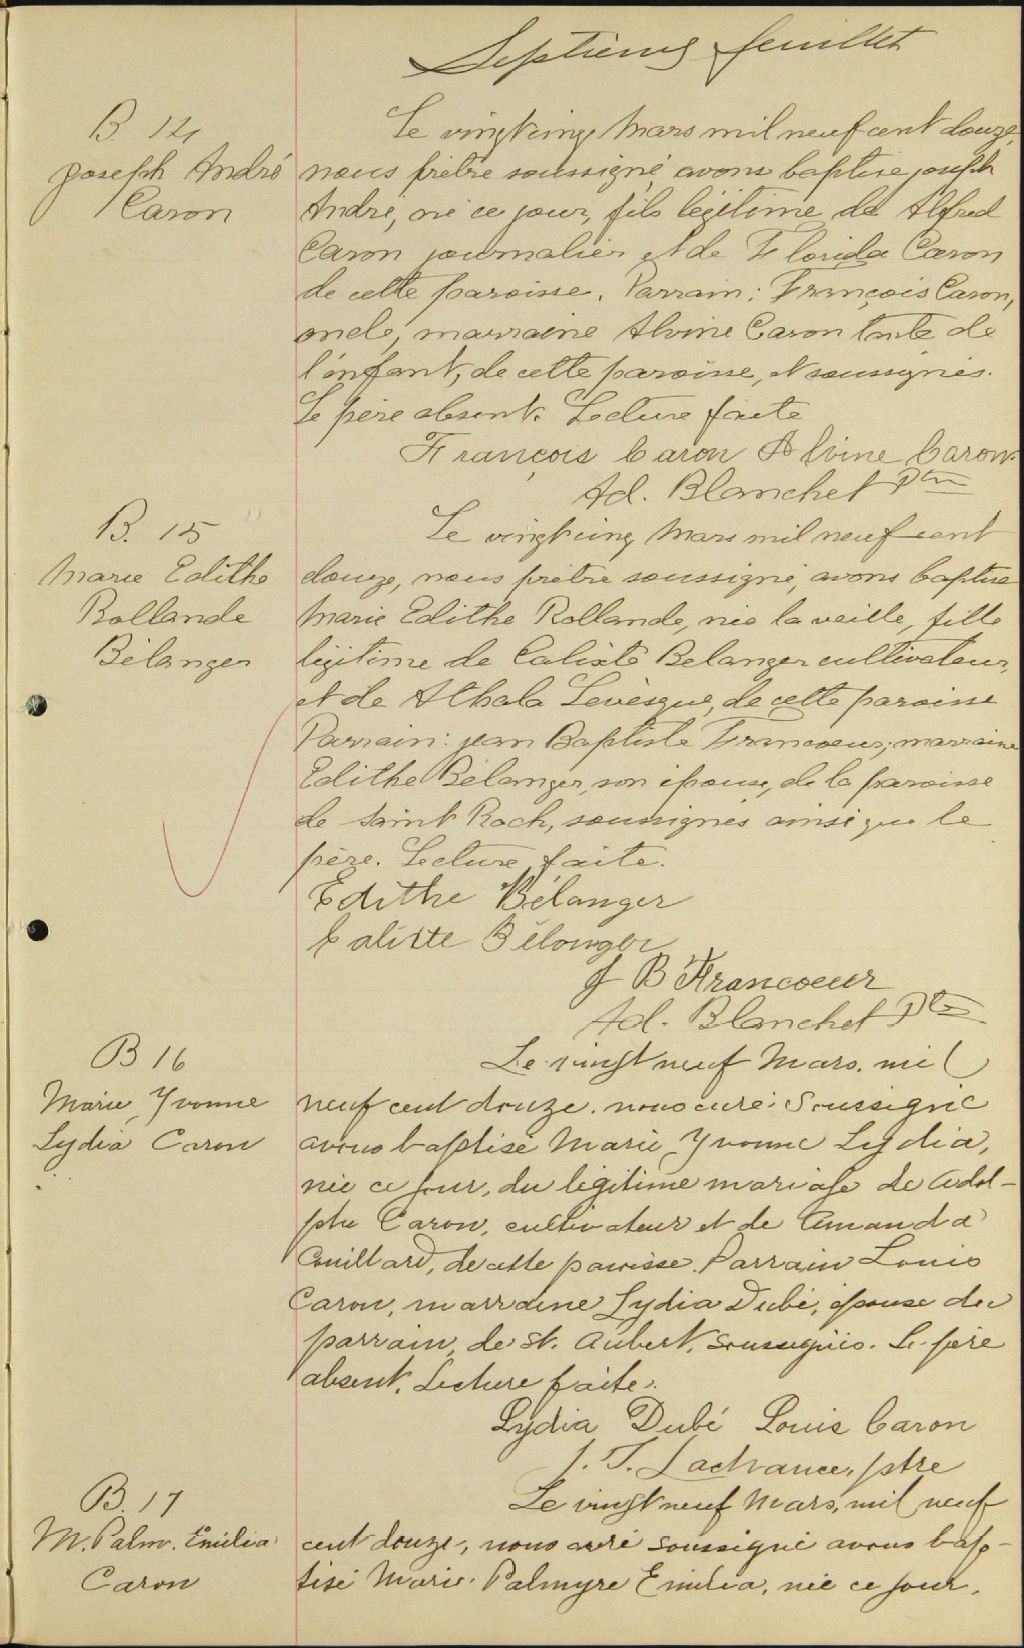 Septième feuillet
B 14
Joseph André
Caron
Le vingt cinq Mars mil neuf cent douze,
nous prêtre soussigné, avons baptisé joseph
André, né ce jour, fils légitime de Alfred
Caron journalier et de Florida Caron
de cette paroisse. Parrain: François Caron,
oncle, marraine Alvine Caron tante de
l'enfant, de cette paroisse, et soussignés.
Le père absent. Lecture faite
François Caron Alvine Caron
Ad. Blanchet Ptre
B. 15
Marie Edithe
Rollande
Bélanger
Le vingt cinq Mars mil neuf cent
douze, nous prêtre soussigné, avons baptisé
Marie Edithe Rollande, née la veille, fille
légitime de Calixte Belanger cultivateur,
et de Athala Levèsque, de cette paroisse
Parrain: jean Baptiste Francoeur, marraine
Edithe Bélanger, son épouse, de la paroisse
de Saint Roch, soussignés ainsi que le
père. Lecture faite.
Edithe Bélanger
Calixte Bélanger
J B Francoeur
Ad. Blanchet Ptre
B 16
Marie Yvonne
Lydia Caron
Le vingt neuf Mars. mil
neuf cent douze. nous curé soussigné
avons baptisé Marie Yvonne Lydia,
née ce jour, du légitime mariage de Adol-
phe Caron, cultivateur et de Amanda
Couillard, de cette paroisse. Parrain Louis
Caron, marraine Lydia Dubé, épouse du
parrain, de St. Aubert, soussignés. Le père
absent. Lecture faite.
Lydia Dubé Louis Caron
J. T. Lachance, ptre
B. 17
M. Palm. Emilia
Caron
Le vingt neuf Mars, mil neuf
cent douze, nous curé soussigné avons bap-
tisé Marie Palmyre Emilia, née ce jour,